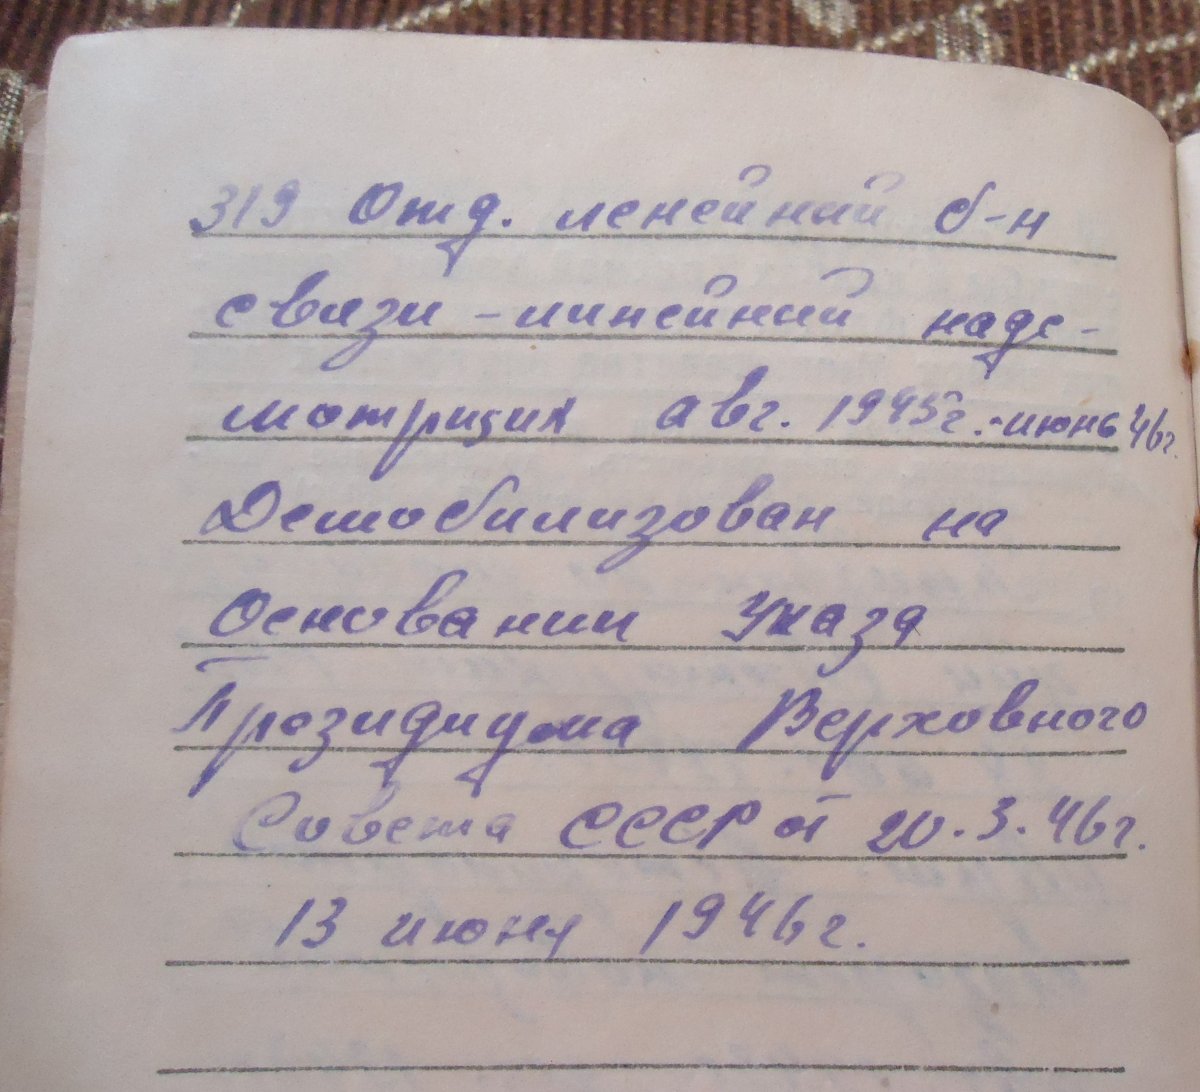 319 Отд. ленейний б-н
связи - линейний надс-
мотрщик авг. 1945г.-июнь 46г.
Демобилизован на
Основании Указа
Президиума Верховного
Совета СССР от 20.3.46г.
13 июня 1946г.